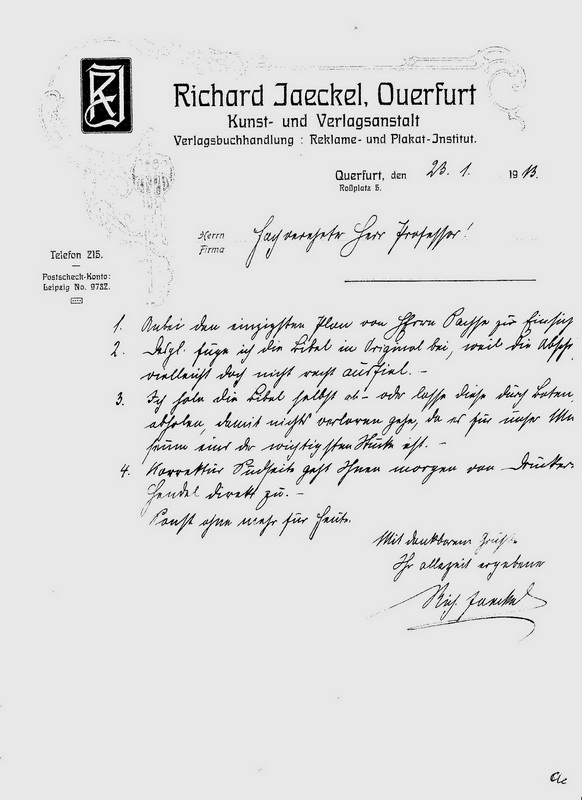 RJ
Richard Jaeckel, Querfurt
Kunst- und Verlagsanstalt
Verlagsbuchhandlung : Reklame- und Plakat-Institut.
Querfurt, den 23. 1. 1913.
Roßplatz 5.
Herrn
Firma
Hochverehrter Herr Professor!
Telefon 215.
Postscheck-Konto:
Leipzig No. 9732.
1. Anbei den einzigsten Plan von Herrn zur Einsich
2. Desgl. füge ich die Bibel in Original bei, weil die Abschr
vielleicht doch nicht recht ausfiel. –
3. Ich hole die Bibel selbst ab – oder lasse diese durch Boten
abholen, damit nichts verloren gehe, da es für unser Mu
seum eins der wichtigsten Stücke ist. –
4. Korrektur Südseite geht Ihnen morgen von Drucker
Hendel direkt zu. –
Sonst ohne mehr für heute.
Mit dankbarem
Ihr allezeit ergebener
Rich. Jaeckel